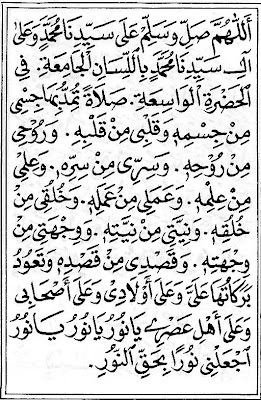 اَللّٰهُمَّ صَلِّ وَسَلِّمْ عَلَى سَيِّدِنَا مُحَمَّدٍ وَعَلَى
آلِ سَيِّدِنَا مُحَمَّدٍ بِاللِّسَانِ الْجَامِعَةِ . فِى
الْحَضْرَةِ الْوَاسِعَةِ . صَلَاةً تُمِدُّ بِهَا جِسْمِى
مِنْ جِسْمِهِ وَقَلْبِى مِنْ قَلْبِهِ . وَرُوْحِى
مِنْ رُوْحِهِ . وَسِرِّى مِنْ سِرِّهِ . وَعِلْمِى
مِنْ عِلْمِهِ . وَعَمَلِى مِنْ عَمَلِهِ . وَخُلُقِى مِنْ
خُلُقِهِ . وَنِيَّتِى مِنْ نِيَّتِهِ . وَوِجْهَتِى مِنْ
وِجْهَتِهِ . وَقَصْدِى مِنْ قَصْدِهِ وَتَعُوْدُ
بَرَكَاتُهَا عَلَيَّ وَعَلَى أَوْلَادِى وَعَلَى أَصْحَابِى
وَعَلَى أَهْلِ عَصْرِى يَا نُوْرُ يَا نُوْرُ يَا نُوْرُ
اجْعَلْنِى نُوْرًا بِحَقِّ النُّوْرِ .